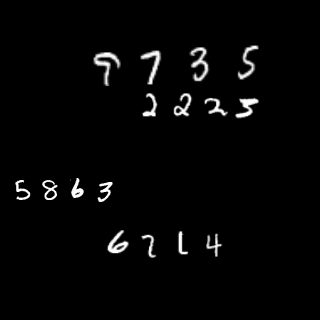 9735
2225
5863
6214